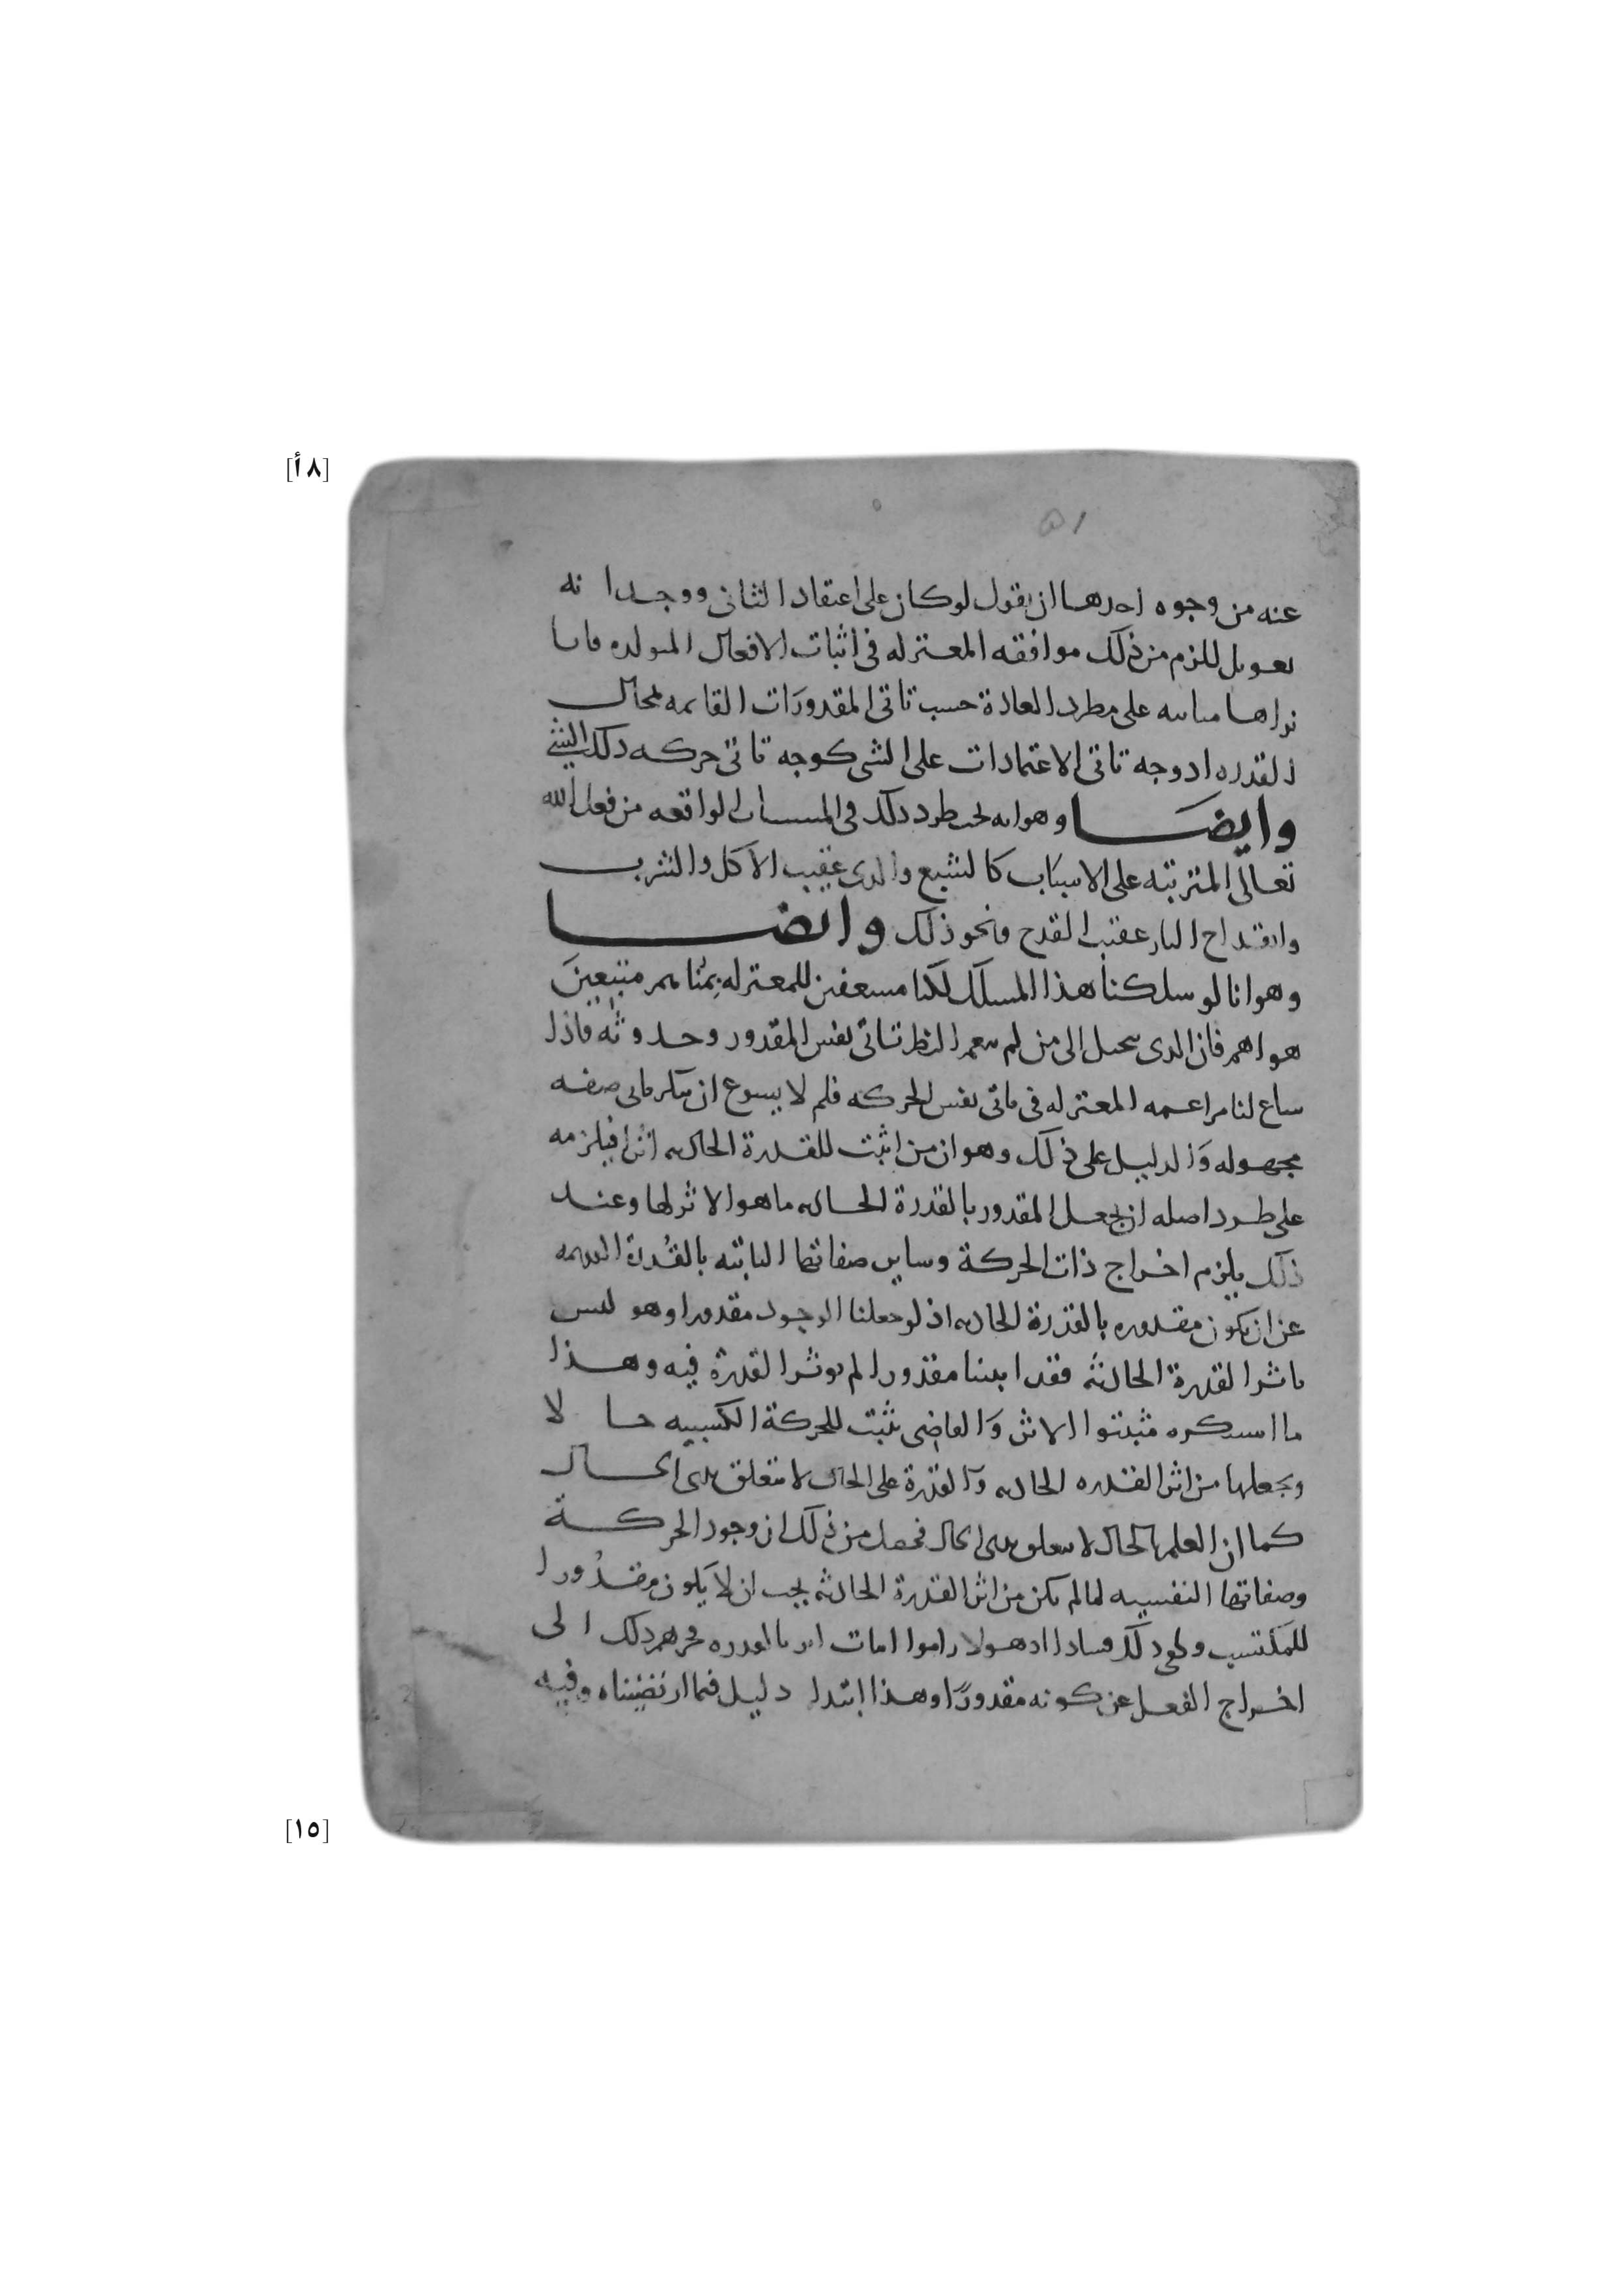 [٨أ]
٥١
عنه من وجوه احدها ان يقول لو كان على اعتقاد الثانى ووجدانه
تعويل للزم من ذلك موافقه المعتزله فى اثبات الافعال المتولده فانا
نراها على مطرد العادة حسب تاتى المقدورات القايمه بمحال
القدره اذ وجه تاتى الاعتمادات على الشى كوجه تاتى حركه ذلك الشى
وايضا وهو انه يجب طرد ذلك فى المسببات الواقعه من فعل الله
تعالى المترتبه على الاسباب كالشبع والرى عقيب الاكل والشرب
وانقداح النار عقيب القدح ونحو ذلك وايضا
وهو انا لو سلكنا هذا المسلك لكنا مسعفين للمعتزله متبعين
هواهم فان الذى يخيل الى من لم ينعم النظر تاتى نفس المقدور وحدوثه فاذا
ساغ لنا مراغمه المعتزله فى تاتى نفس الحركه فلم لا يسوغ ان ننكر تاتى صفه
مجهوله والدليل على ذلك وهو ان من اثبت للقدرة الحادثه اثرا فيلزمه
على طرد اصله ان يجعل المقدور بالقدرة الحادثه ما هو الاثر لها وعند
ذلك يلزم اخراج ذات الحركة وساير صفاتها الثابته بالقدرة القديمه
عن ان يكون مقدوره بالقدرة الحادثه اذ لو جعلنا الوجود مقدورا وهو ليس
باثر القدرة الحادثه فقد اثبتنا مقدورا لم يوثر القدرة فيه وهذا
ما استنكره مثبتوا الاثر والقاضى يثبت للحركة الكسبيه حالا
ويجعلها من اثر القدره الحادثه والقدرة على الحال لا يتعلق بذى الحال
كما ان العلم بالحال لا يتعلق بذى الحال فحصل من ذلك ان وجود الحركة
وصفاتها النفسيه لما لم يكن من اثر القدرة الحادثه يجب ان لا يكون مقدورا
للمكتسب وكفى ذلك فسادا اذ هولا راموا اثبات اثر بالقدره فجرهم ذلك الى
اخراج الفعل عن كونه مقدورا وهذا ابتدا دليل فيما ارتضيناه وفيه
[١٥]